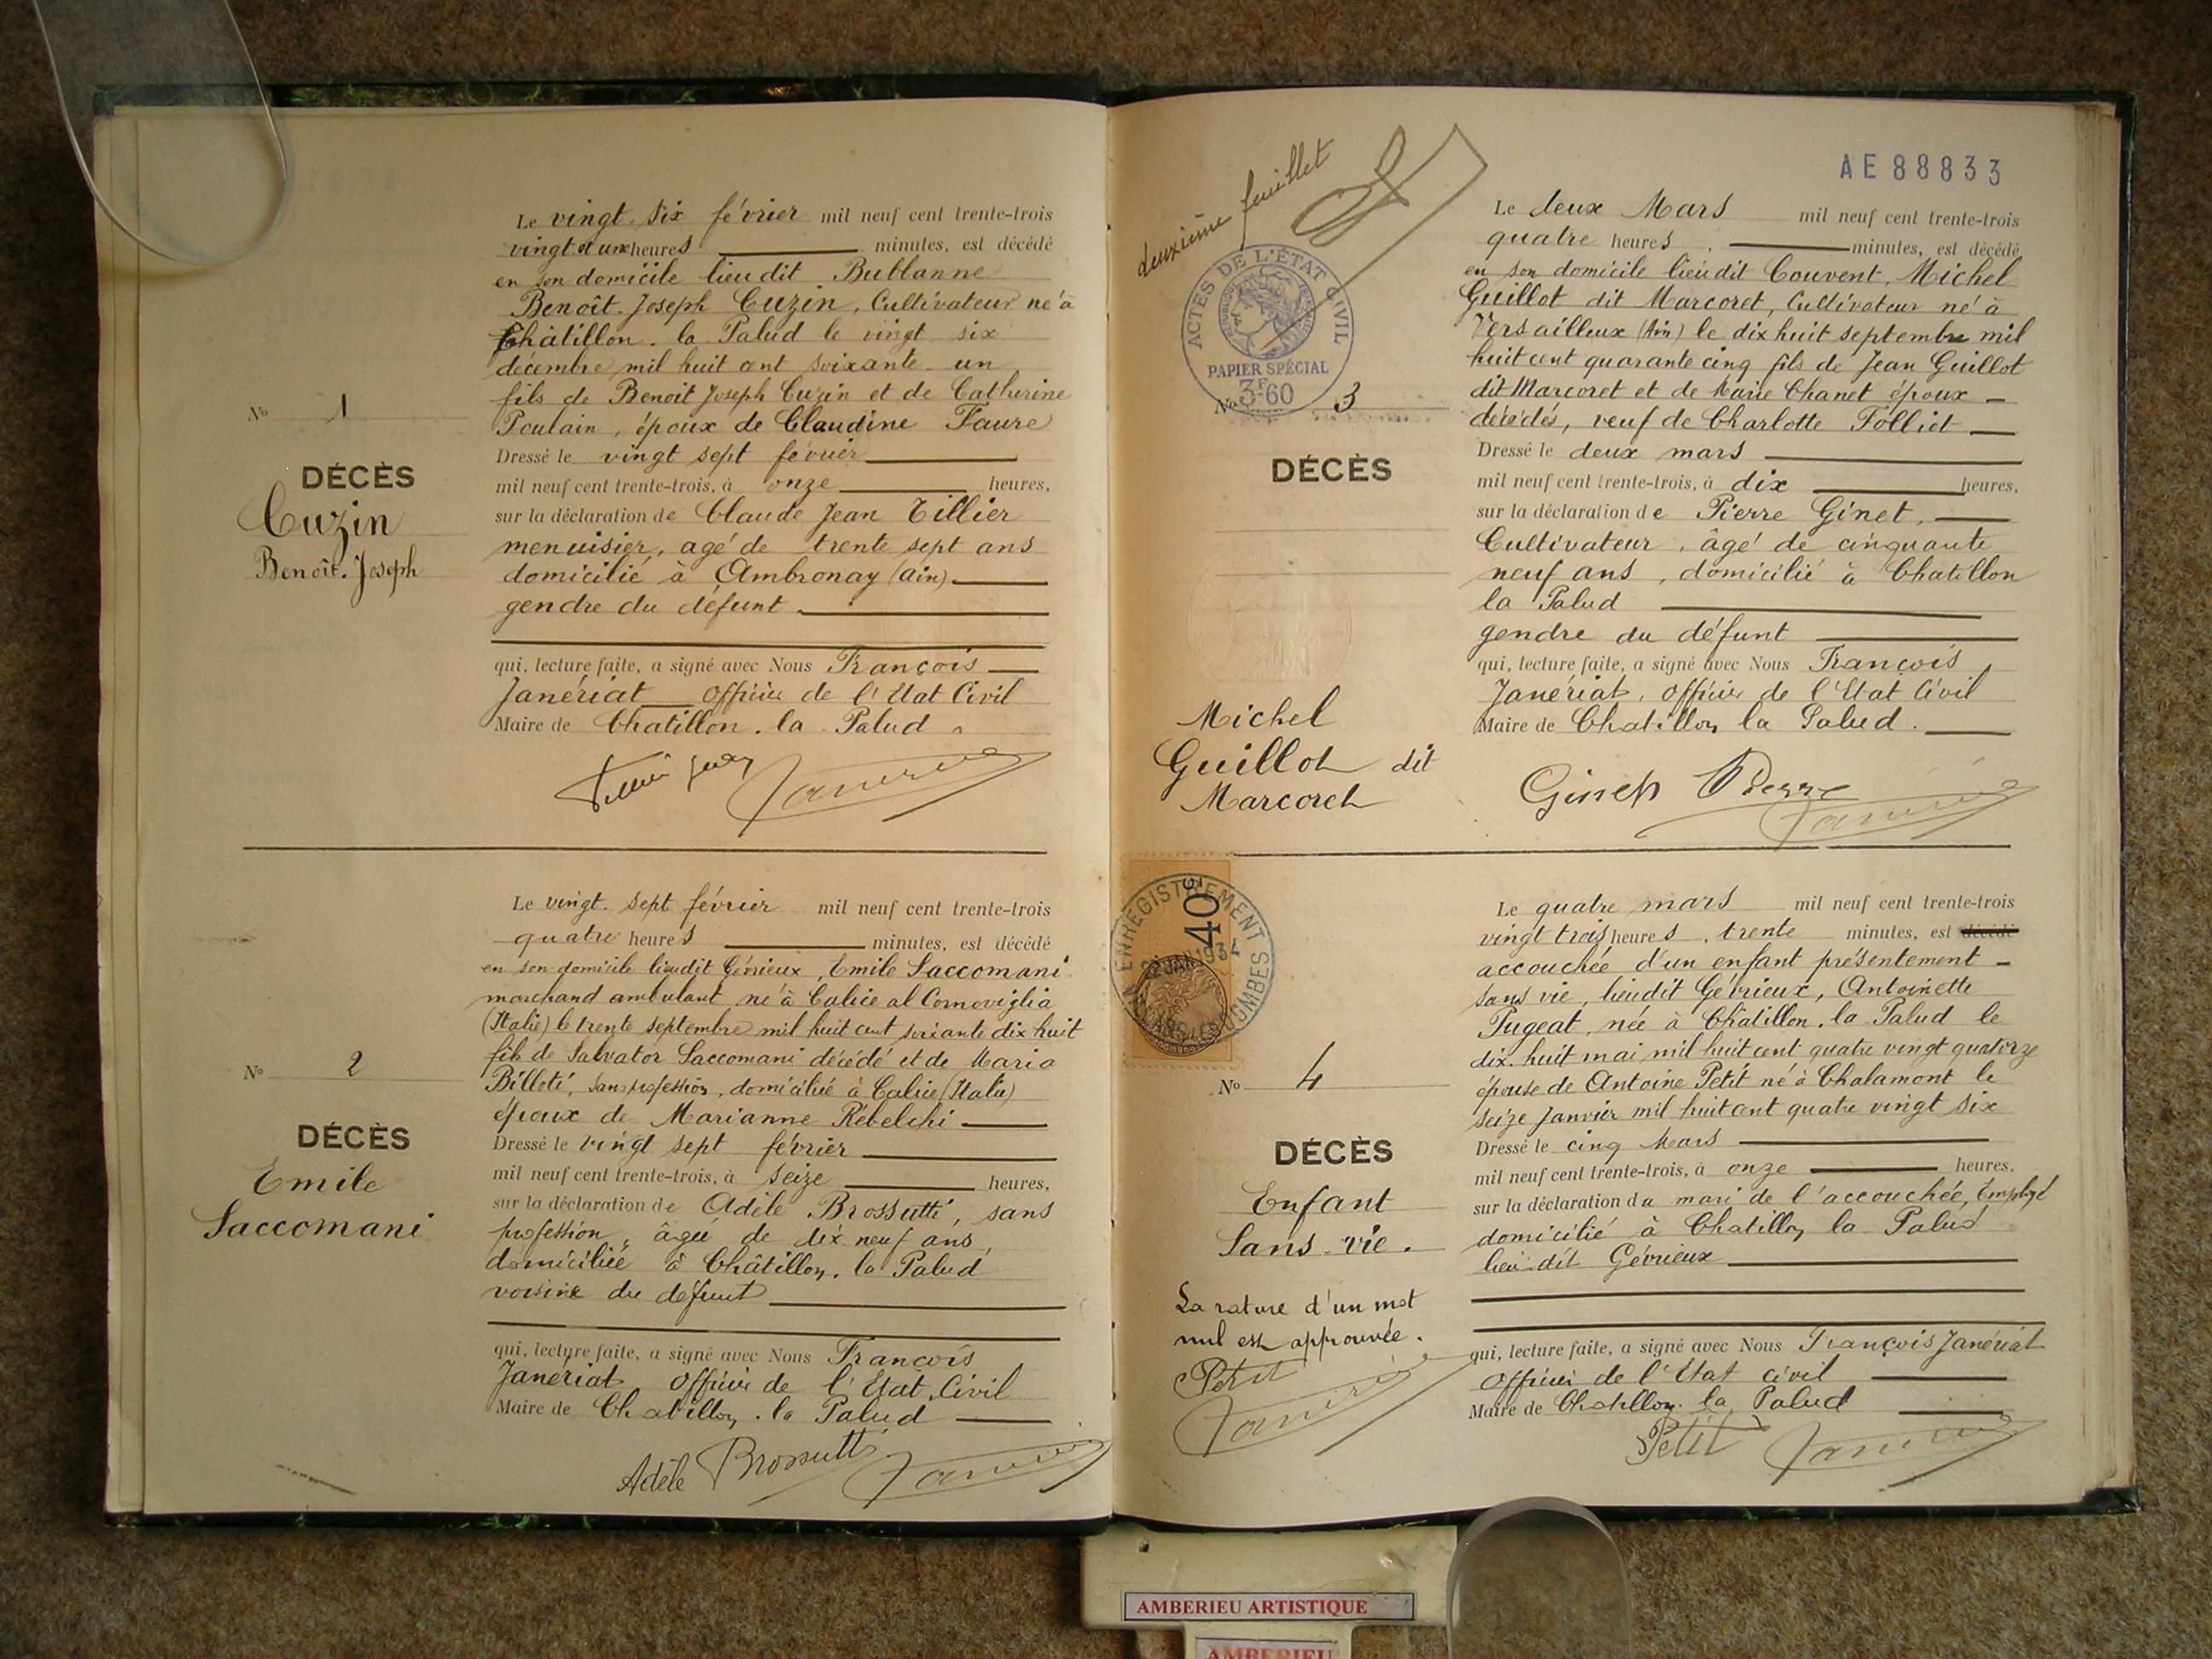 Le vingt six février mil neuf cent trente-trois
vingt et une heures minutes, est décédé
en son domicile lieu dit Bublanne
Benoît. Joseph Cuzin, Cultivateur né à
Châtillon. la Palud le vingt six
décembre mil huit cent soixante un
fils de Benoit Joseph Cuzin et de Catherine
Poulain, époux de Claudine Faure
Dressé le vingt sept février
mil neuf cent trente-trois, à onze heures,
sur la déclaration de Claude Jean Tillier
menuisier, agé de trente sept ans
domicilié à Ambronay (Ain)
gendre du défunt
qui, lecture faite, a signé avec Nous François
Janériat officier de l'Etat Civil
Maire de Chatillon. la Palud
No 1
DÉCÈS
Cuzin
Benoît. Joseph
Le vingt. sept février mil neuf cent trente-trois
quatre heures minutes, est décédé
en son domicile lieudit Gévrieux, Emile Saccomani
marchand ambulant, né à Calice al Cornoviglia
(Italie) le trente septembre mil huit cent soixante dix huit
fils de Salvator Saccomani décédé et de Maria
Billoti, sans profession, domiciliée à Calice (Italie)
époux de Marianne Rébelchi
Dressé le vingt sept février
mil neuf cent trente-trois, à seize heures,
sur la déclaration de Adèle Brossutti, sans
profession, âgée de dix neuf ans,
domiciliée à Châtillon. la Palud
voisine du défunt
qui, lecture faite, a signé avec Nous François
Janériat officier de l'Etat Civil
Maire de Chatillon. la Palud
Adèle Brossutti
No 2
DÉCÈS
Emile
Saccomani
deuxième feuillet
ACTES DE L'ÉTAT CIVIL
PAPIER SPÉCIAL
3F60
AE 88833
Le deux Mars mil neuf cent trente-trois
quatre heures. minutes, est décédé
en son domicile lieudit Couvent, Michel
Guillot dit Marcoret, Cultivateur né à
Versailleux (Ain) le dix huit septembre mil
huit cent quarante cinq fils de Jean Guillot
dit Marcoret et de Marie Chanet époux
décédés, veuf de Charlotte Folliet
Dressé le deux mars
mil neuf cent trente-trois, à dix heures,
sur la déclaration de Pierre Ginet,
Cultivateur, âgé de cinquante
neuf ans, domicilié à Chatillon
la Palud
gendre du défunt
qui, lecture faite, a signé avec Nous François
Janériat, officier de l'Etat Civil
Maire de Chatillon la Palud.
Ginet Pierre
No 3
DÉCÈS
Michel
Guillot dit
Marcoret
ENREGISTREMENT
DOMBES
40
Le quatre mars mil neuf cent trente-trois
vingt trois heures. trente minutes, est décédé
accouchée d'un enfant présentement
sans vie, lieudit Gévrieux, Antoinette
Pugeat, née à Châtillon. la Palud le
dix. huit mai mil huit cent quatre vingt quatorze
épouse de Antoine Petit né à Chalamont le
seize Janvier mil huit cent quatre vingt six
Dressé le cinq Mars
mil neuf cent trente-trois, à onze heures,
sur la déclaration du mari de l'accouchée, Employé
domicilié à Chatillon la Palud
lieu-dit Gévrieux
qui, lecture faite, a signé avec Nous François Janériat
officier de l'Etat civil
Maire de Chatillon. la Palud
Petit
No 4
DÉCÈS
Enfant
Sans-vie.
La rature d'un mot
nul est approuvée.
Petit
AMBERIEU ARTISTIQUE
AMBERIEU